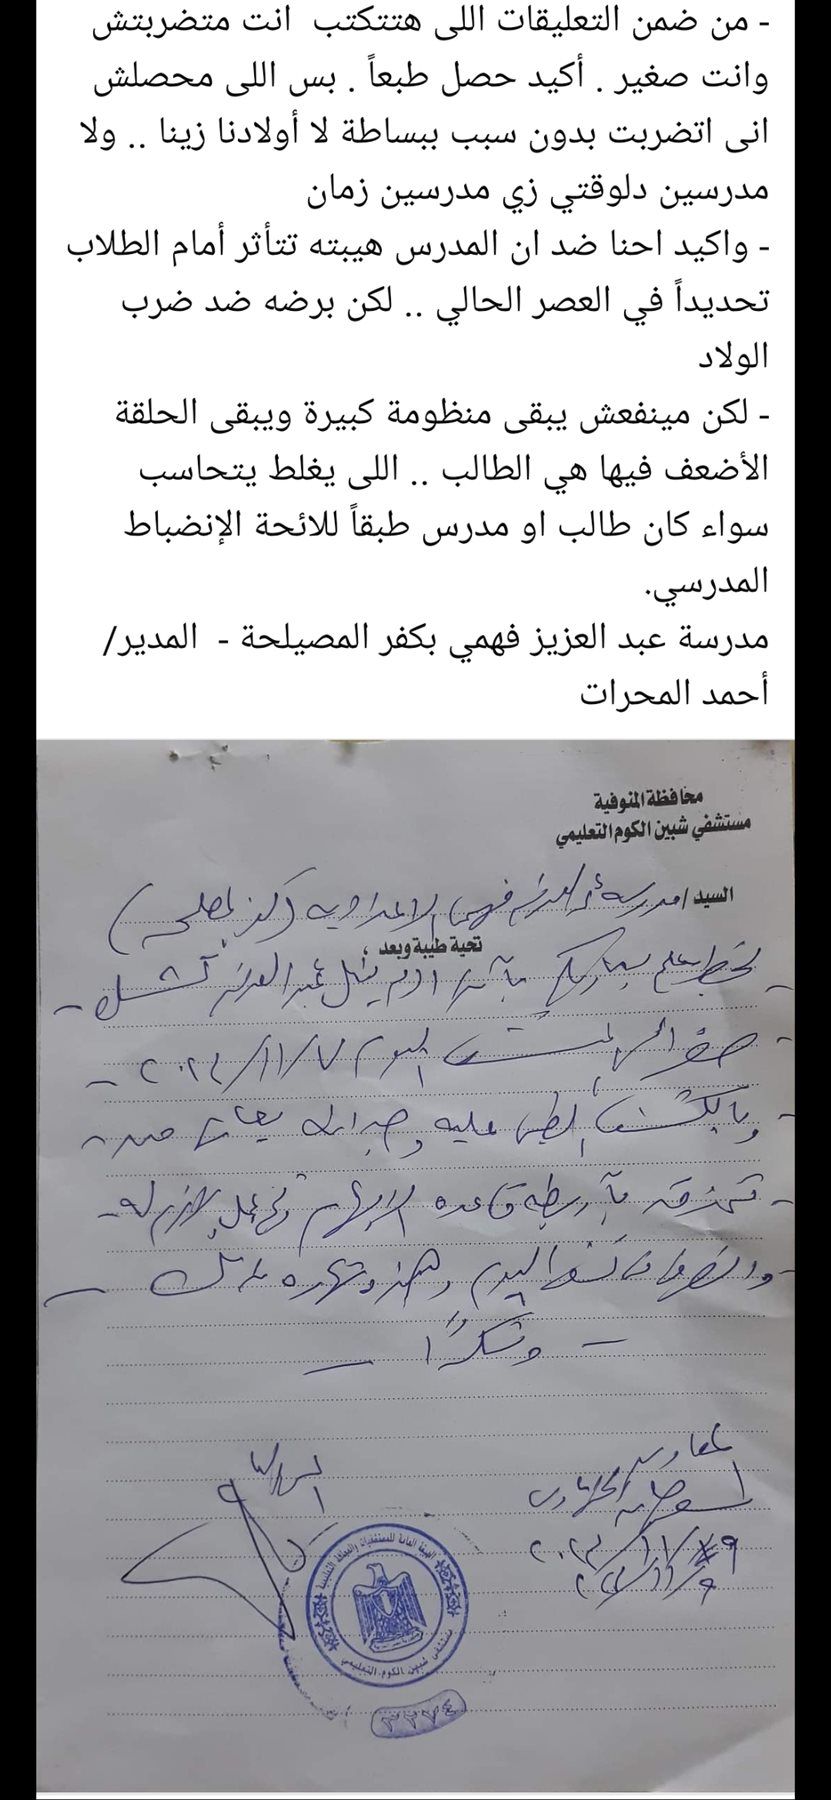 - من ضمن التعليقات اللى هتتكتب انت متضربتش
وانت صغير . أكيد حصل طبعاً . بس اللى محصلش
انى اتضربت بدون سبب ببساطة لا أولادنا زينا .. ولا
مدرسين دلوقتي زي مدرسين زمان
- واكيد احنا ضد ان المدرس هيبته تتأثر أمام الطلاب
تحديداً في العصر الحالي .. لكن برضه ضد ضرب
الولاد
- لكن مينفعش يبقى منظومة كبيرة ويبقى الحلقة
الأضعف فيها هي الطالب .. اللى يغلط يتحاسب
سواء كان طالب او مدرس طبقاً للائحة الإنضباط
المدرسي.
مدرسة عبد العزيز فهمي بكفر المصيلحة - المدير/
أحمد المحرات
محافظة المنوفية
مستشفي شبين الكوم التعليمي
السيد / مدرسة فهمى الاعدادية
تحية طيبة وبعد ،
حضر الى المستشفى اليوم ٧/١١/٢٠٢٣
وبالكشف الطبى عليه وجد انه يعانى من
تمزق بأربطة قاعدة الابهام
وشكراً
الهيئة العامة للمستشفيات والمعاهد التعليمية
مستشفى شبين الكوم التعليمي
٣٢٧٤